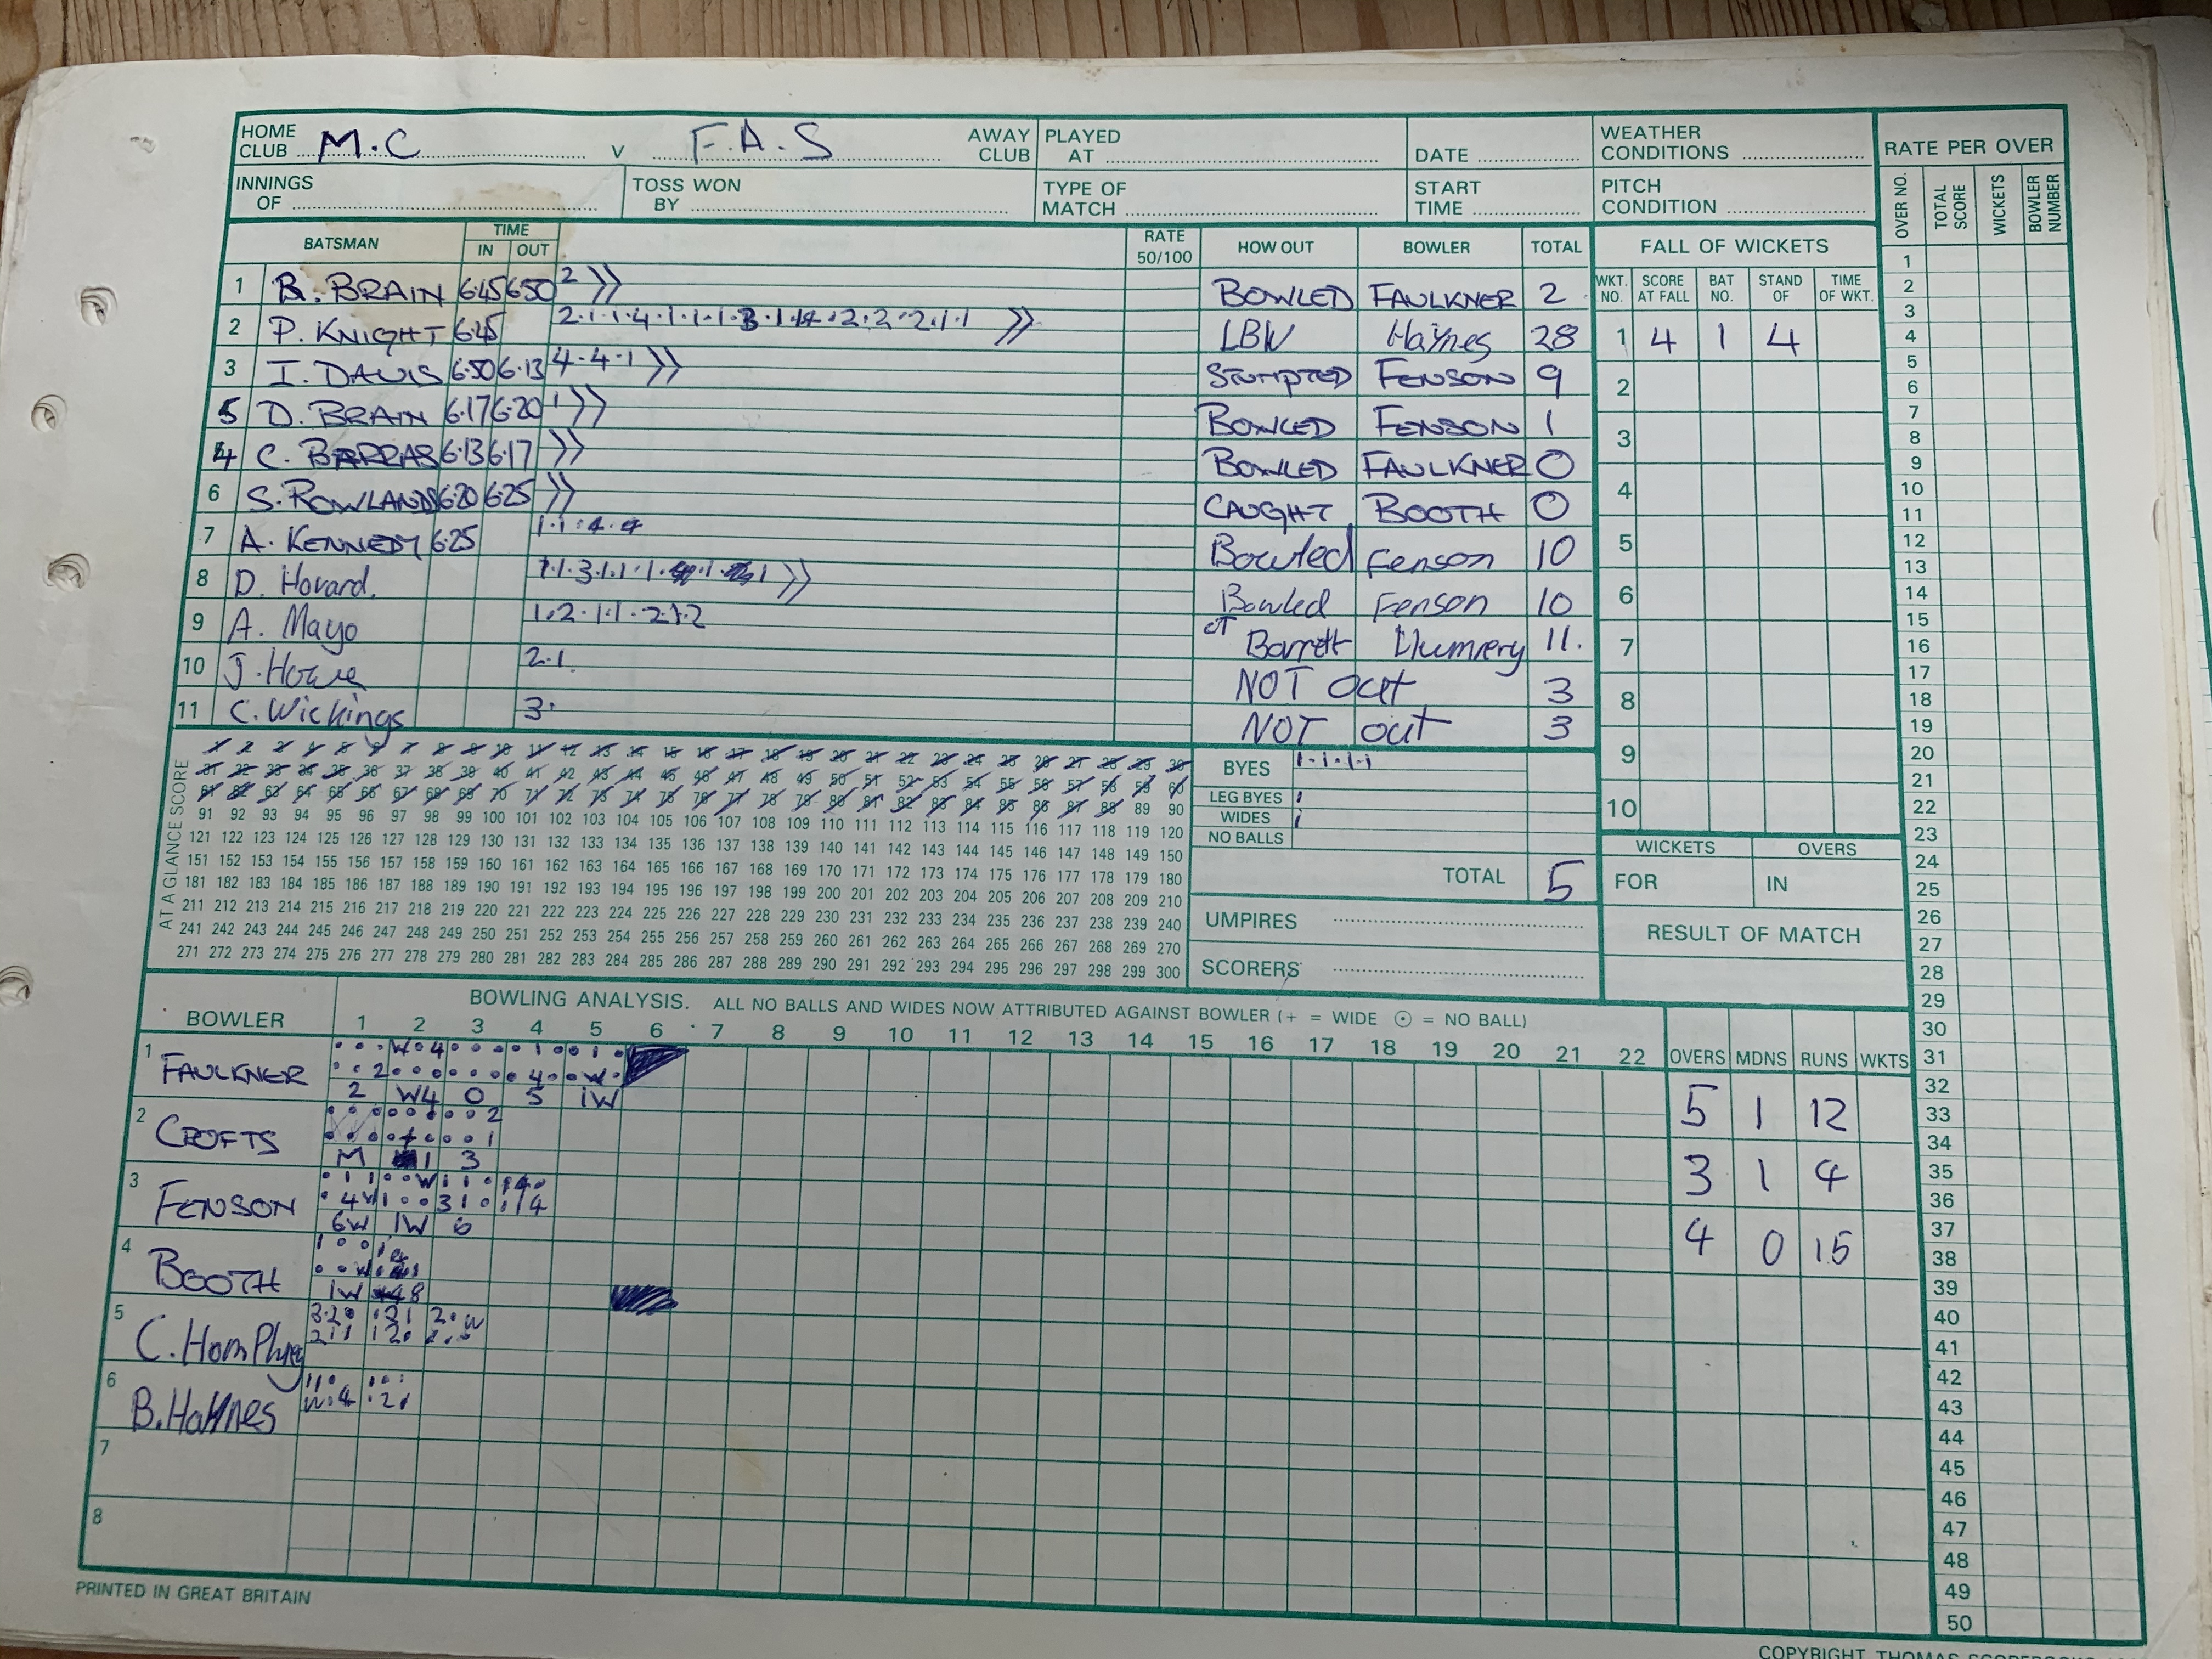 HOME CLUB M.C V F.A.S AWAY CLUB PLAYED AT DATE WEATHER CONDITIONS RATE PER OVER
INNINGS OF TOSS WON BY TYPE OF MATCH START TIME PITCH CONDITION
OVER NO. TOTAL SCORE WICKETS BOWLER NUMBER
BATSMAN TIME IN OUT RATE 50/100 HOW OUT BOWLER TOTAL FALL OF WICKETS
WKT. NO. SCORE AT FALL BAT NO. STAND OF TIME OF WKT.
1 B. BRAIN 6.45 6.50 2 BOWLED FAULKNER 2
2 P. KNIGHT 6.45 LBW Haynes 28
1 4 1 4
3 I. DAVIS 6.50 6.13 4.4.1 STUMPTED FENSON 9
5 D. BRAIN 6.17 6.20 1 BOWLED FENSON 1
4 C. BARRAS 6.13 6.17 BOWLED FAULKNER 0
6 S. ROWLANDS 6.20 6.25 CAUGHT BOOTH 0
7 A. KENNEDY 6.25 1.1.4.4 Bowled Fenson 10
8 D. Hovard. Bowled Fenson 10
9 A. Mayo 1.2.1.1.2.1.2 CT Barrett 11.
10 J. Howe 2.1. NOT out 3
11 C. Wickings 3. NOT out 3
2
3
4
5
6
7
8
9
10
AT A GLANCE SCORE
1 2 3 4 5 6 7 8 9 10 11 12 13 14 15 16 17 18 19 20 21 22 23 24 25 26 27 28 29 30
31 32 33 34 35 36 37 38 39 40 41 42 43 44 45 46 47 48 49 50 51 52 53 54 55 56 57 58 59 60
61 62 63 64 65 66 67 68 69 70 71 72 73 74 75 76 77 78 79 80 81 82 83 84 85 86 87 88 89 90
91 92 93 94 95 96 97 98 99 100 101 102 103 104 105 106 107 108 109 110 111 112 113 114 115 116 117 118 119 120
121 122 123 124 125 126 127 128 129 130 131 132 133 134 135 136 137 138 139 140 141 142 143 144 145 146 147 148 149 150
151 152 153 154 155 156 157 158 159 160 161 162 163 164 165 166 167 168 169 170 171 172 173 174 175 176 177 178 179 180
181 182 183 184 185 186 187 188 189 190 191 192 193 194 195 196 197 198 199 200 201 202 203 204 205 206 207 208 209 210
211 212 213 214 215 216 217 218 219 220 221 222 223 224 225 226 227 228 229 230 231 232 233 234 235 236 237 238 239 240
241 242 243 244 245 246 247 248 249 250 251 252 253 254 255 256 257 258 259 260 261 262 263 264 265 266 267 268 269 270
271 272 273 274 275 276 277 278 279 280 281 282 283 284 285 286 287 288 289 290 291 292 293 294 295 296 297 298 299 300
BYES 1.1.1.1
LEG BYES 1
WIDES 1
NO BALLS
TOTAL 5
UMPIRES
SCORERS
WICKETS OVERS
FOR IN
RESULT OF MATCH
BOWLING ANALYSIS. ALL NO BALLS AND WIDES NOW ATTRIBUTED AGAINST BOWLER (+ = WIDE ⊙ = NO BALL)
BOWLER 1 2 3 4 5 6 7 8 9 10 11 12 13 14 15 16 17 18 19 20 21 22 OVERS MDNS RUNS WKTS
1 FAULKNER 2 W4 0 5 1W 5 1 12
2 CROFTS M 1 3 3 1 4
3 FENSON 6W 1W 6 4 0 15
4 BOOTH 1W
5
6 B. Haynes
7
8
1
2
3
4
5
6
7
8
9
10
11
12
13
14
15
16
17
18
19
20
21
22
23
24
25
26
27
28
29
30
31
32
33
34
35
36
37
38
39
40
41
42
43
44
45
46
47
48
49
50
PRINTED IN GREAT BRITAIN
COPYRIGHT THOMAS